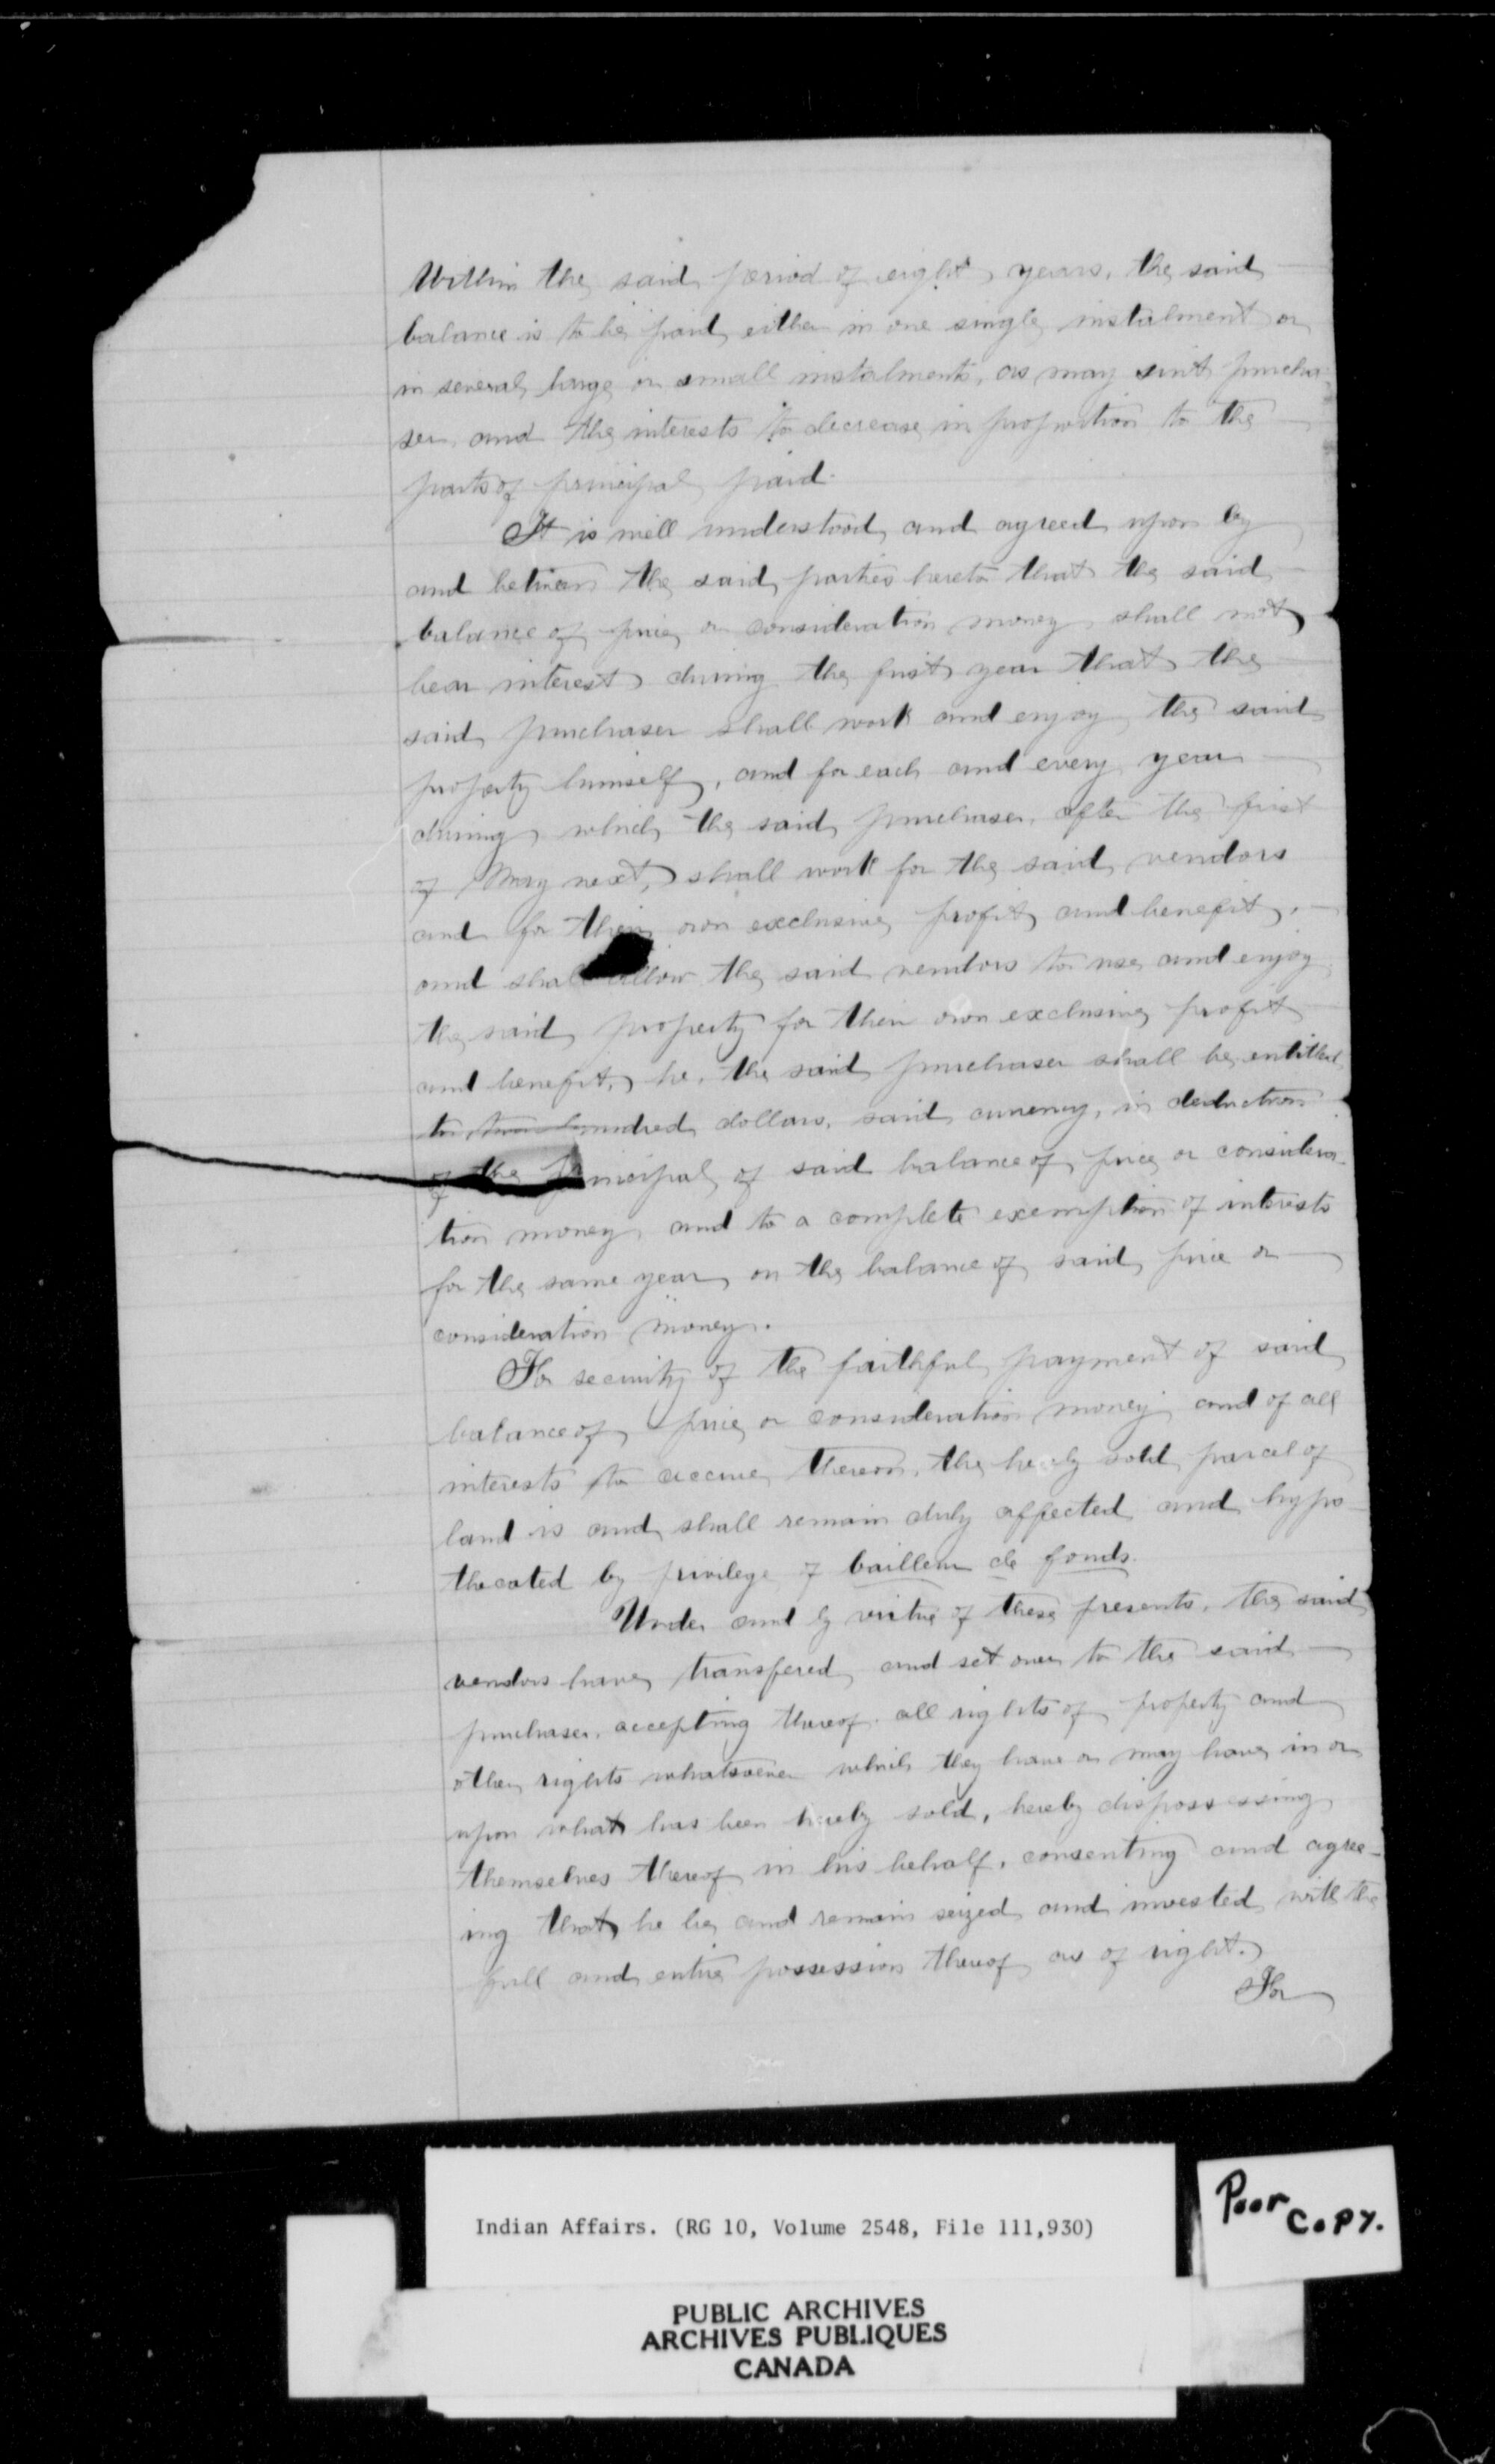 Within the said period of eight years, the said
balance is to be paid either in one single instalment or
in several large or small instalments, as may suit purcha-
ser and the interests to decrease in proportion to the
parts of principal paid.
It is well understood and agreed upon by
and between the said parties hereto that the said
balance of price or consideration money shall not
bear interest during the first year that the
said purchaser shall work and enjoy the said
property himself, and for each and every year
during which the said purchaser, after the first
of May next, shall work for the said vendors
and for their own exclusive profit and benefit,
and shall allow the said vendors to use and enjoy
the said property for their own exclusive profit
and benefit, he, the said purchaser shall be entitled
to two hundred dollars, said currency, in deduction
of the principal of said balance of price or considera-
tion money and to a complete exemption of interests
for the same year on the balance of said price or
consideration money.
For security of the faithful payment of said
balance of price or consideration money and of all
interests to accrue thereon, the hereby sold parcel of
land is and shall remain duly affected and hypo-
thecated by privilege of bailleur de fonds.
Under and by virtue of these presents, the said
vendors have transfered and set over to the said
purchaser, accepting thereof, all rights of property and
other rights whatsoever which they have or may have in or
upon what has been hereby sold, hereby dispossessing
themselves thereof in his behalf, consenting and agree-
ing that he be and remain seized and invested with the
full and entire possession thereof as of right.
For
Indian Affairs. (RG 10, Volume 2548, File 111,930)
Poor
Copy.
PUBLIC ARCHIVES
ARCHIVES PUBLIQUES
CANADA